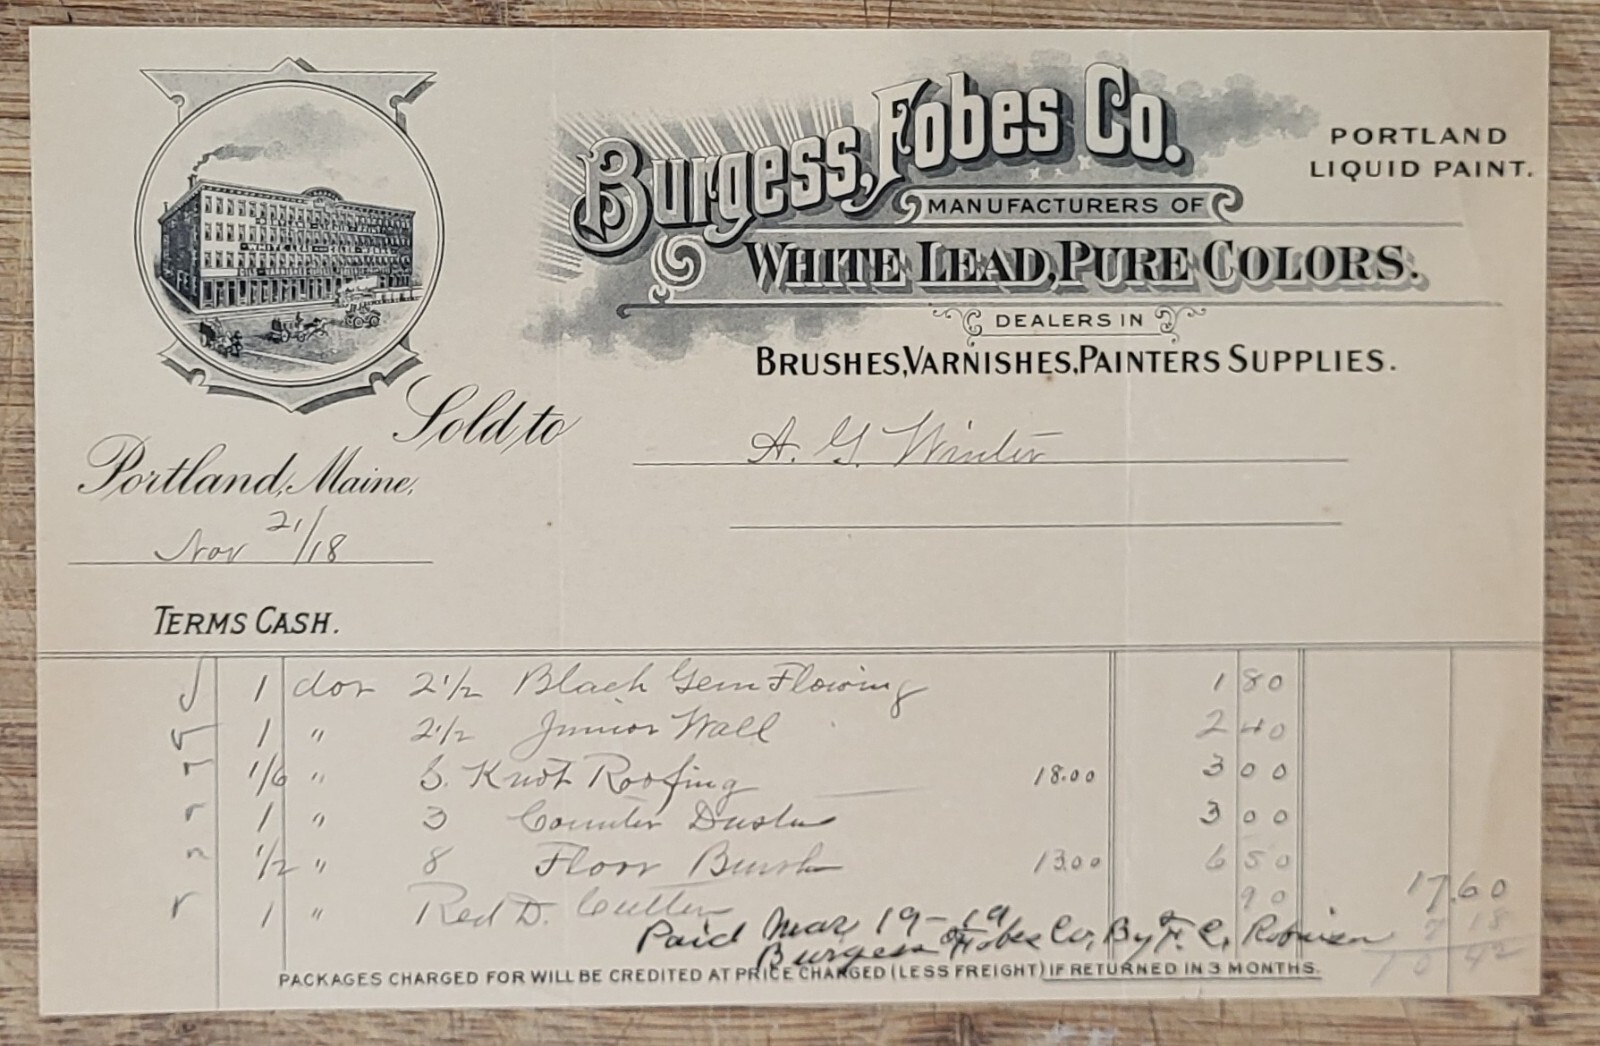 Burgess, Fobes Co.
PORTLAND
LIQUID PAINT.
MANUFACTURERS OF
WHITE LEAD, PURE COLORS.
DEALERS IN
BRUSHES, VARNISHES, PAINTERS SUPPLIES.
Sold to
A. G. Winter
Portland, Maine,
Nov 21/18
TERMS CASH.
1 doz 2 1/2 Black Gem Flowing 1 80
1 " 2 1/2 Junior Wall 2 40
1/6 " 3. Knot Roofing 18.00 3 00
1 " 3 Counter Duster 3 00
1/2 " 8 Floor Brush 13.00 6 50
1 " Red D. Cutter 90 17.60
7 18
10 42
Paid Mar 19-19
Burgess Fobes Co, By F. C. Robinson
PACKAGES CHARGED FOR WILL BE CREDITED AT PRICE CHARGED (LESS FREIGHT) IF RETURNED IN 3 MONTHS.